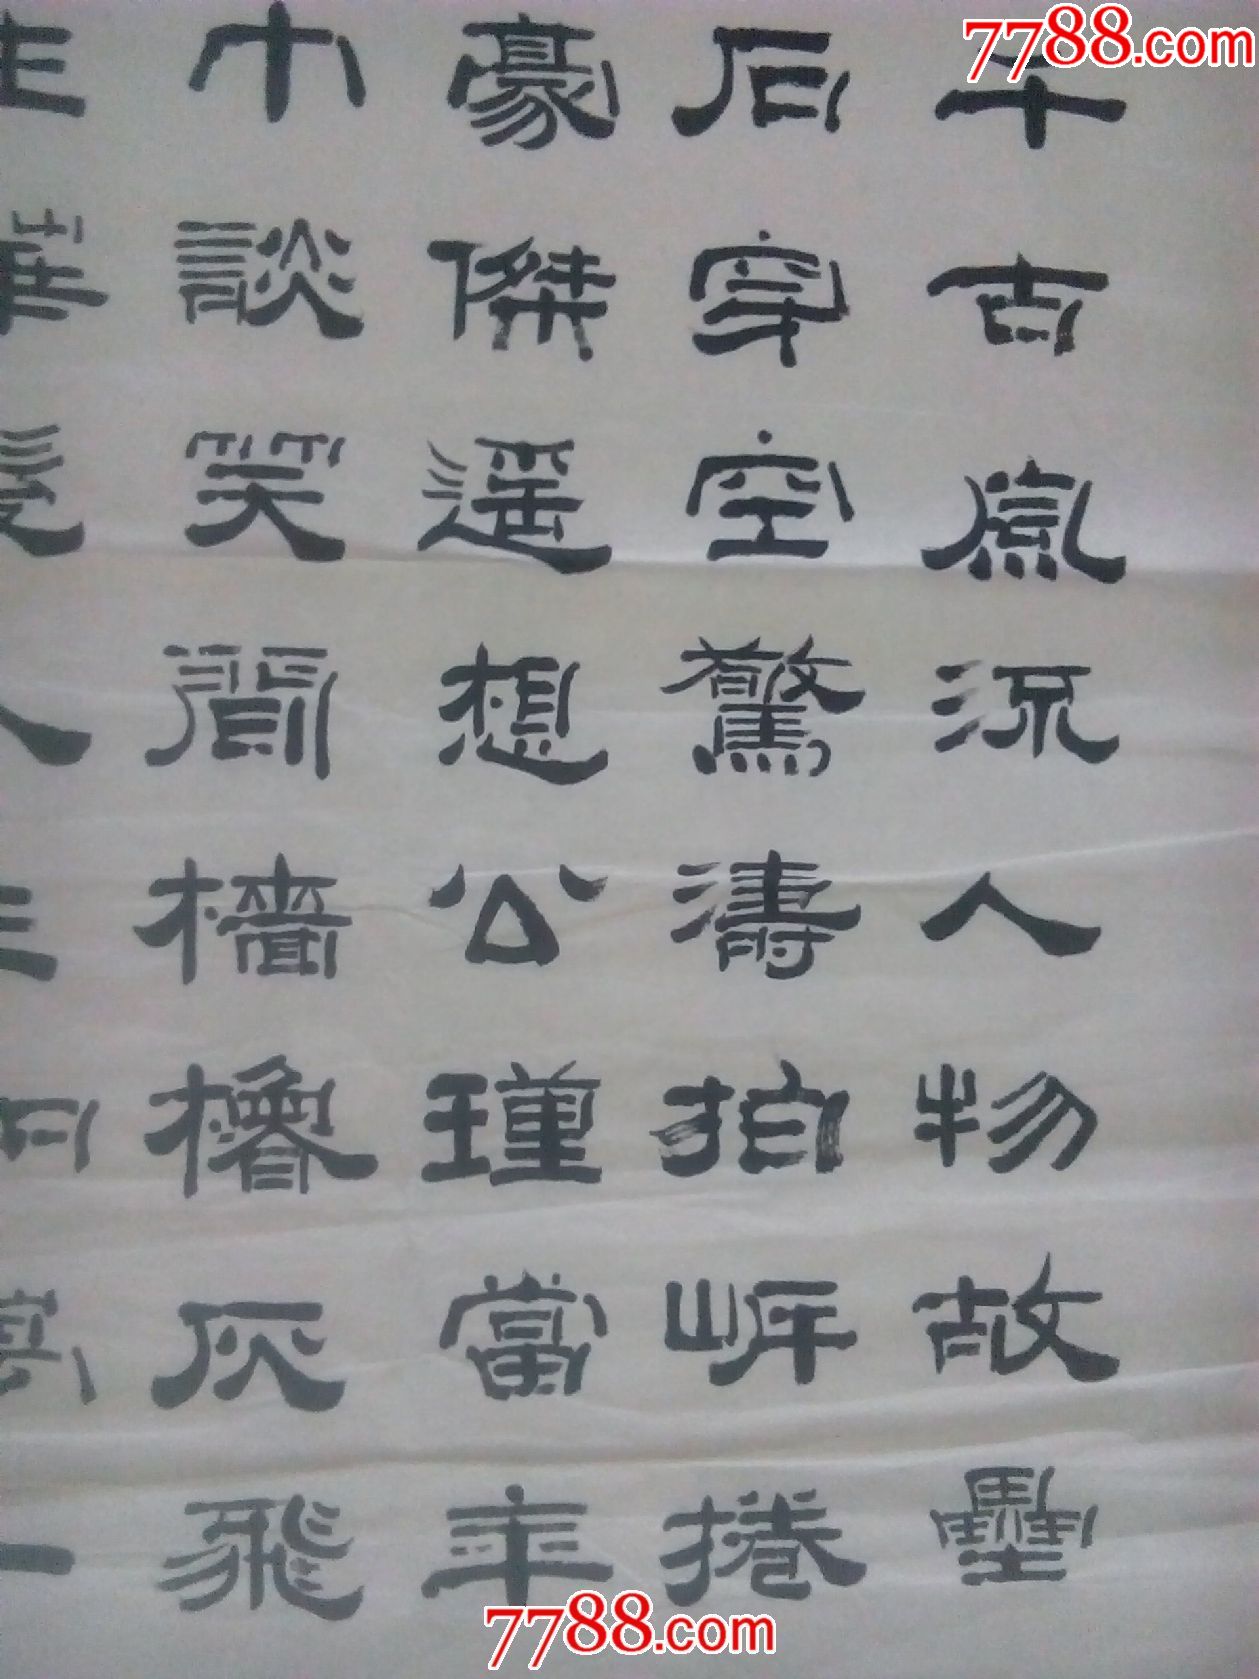 7788.com
千古風流人物故壘
石穿空驚濤拍岸捲
豪傑遙想公瑾當年
巾談笑間檣櫓灰飛
生華髮人生如夢一
7788.com